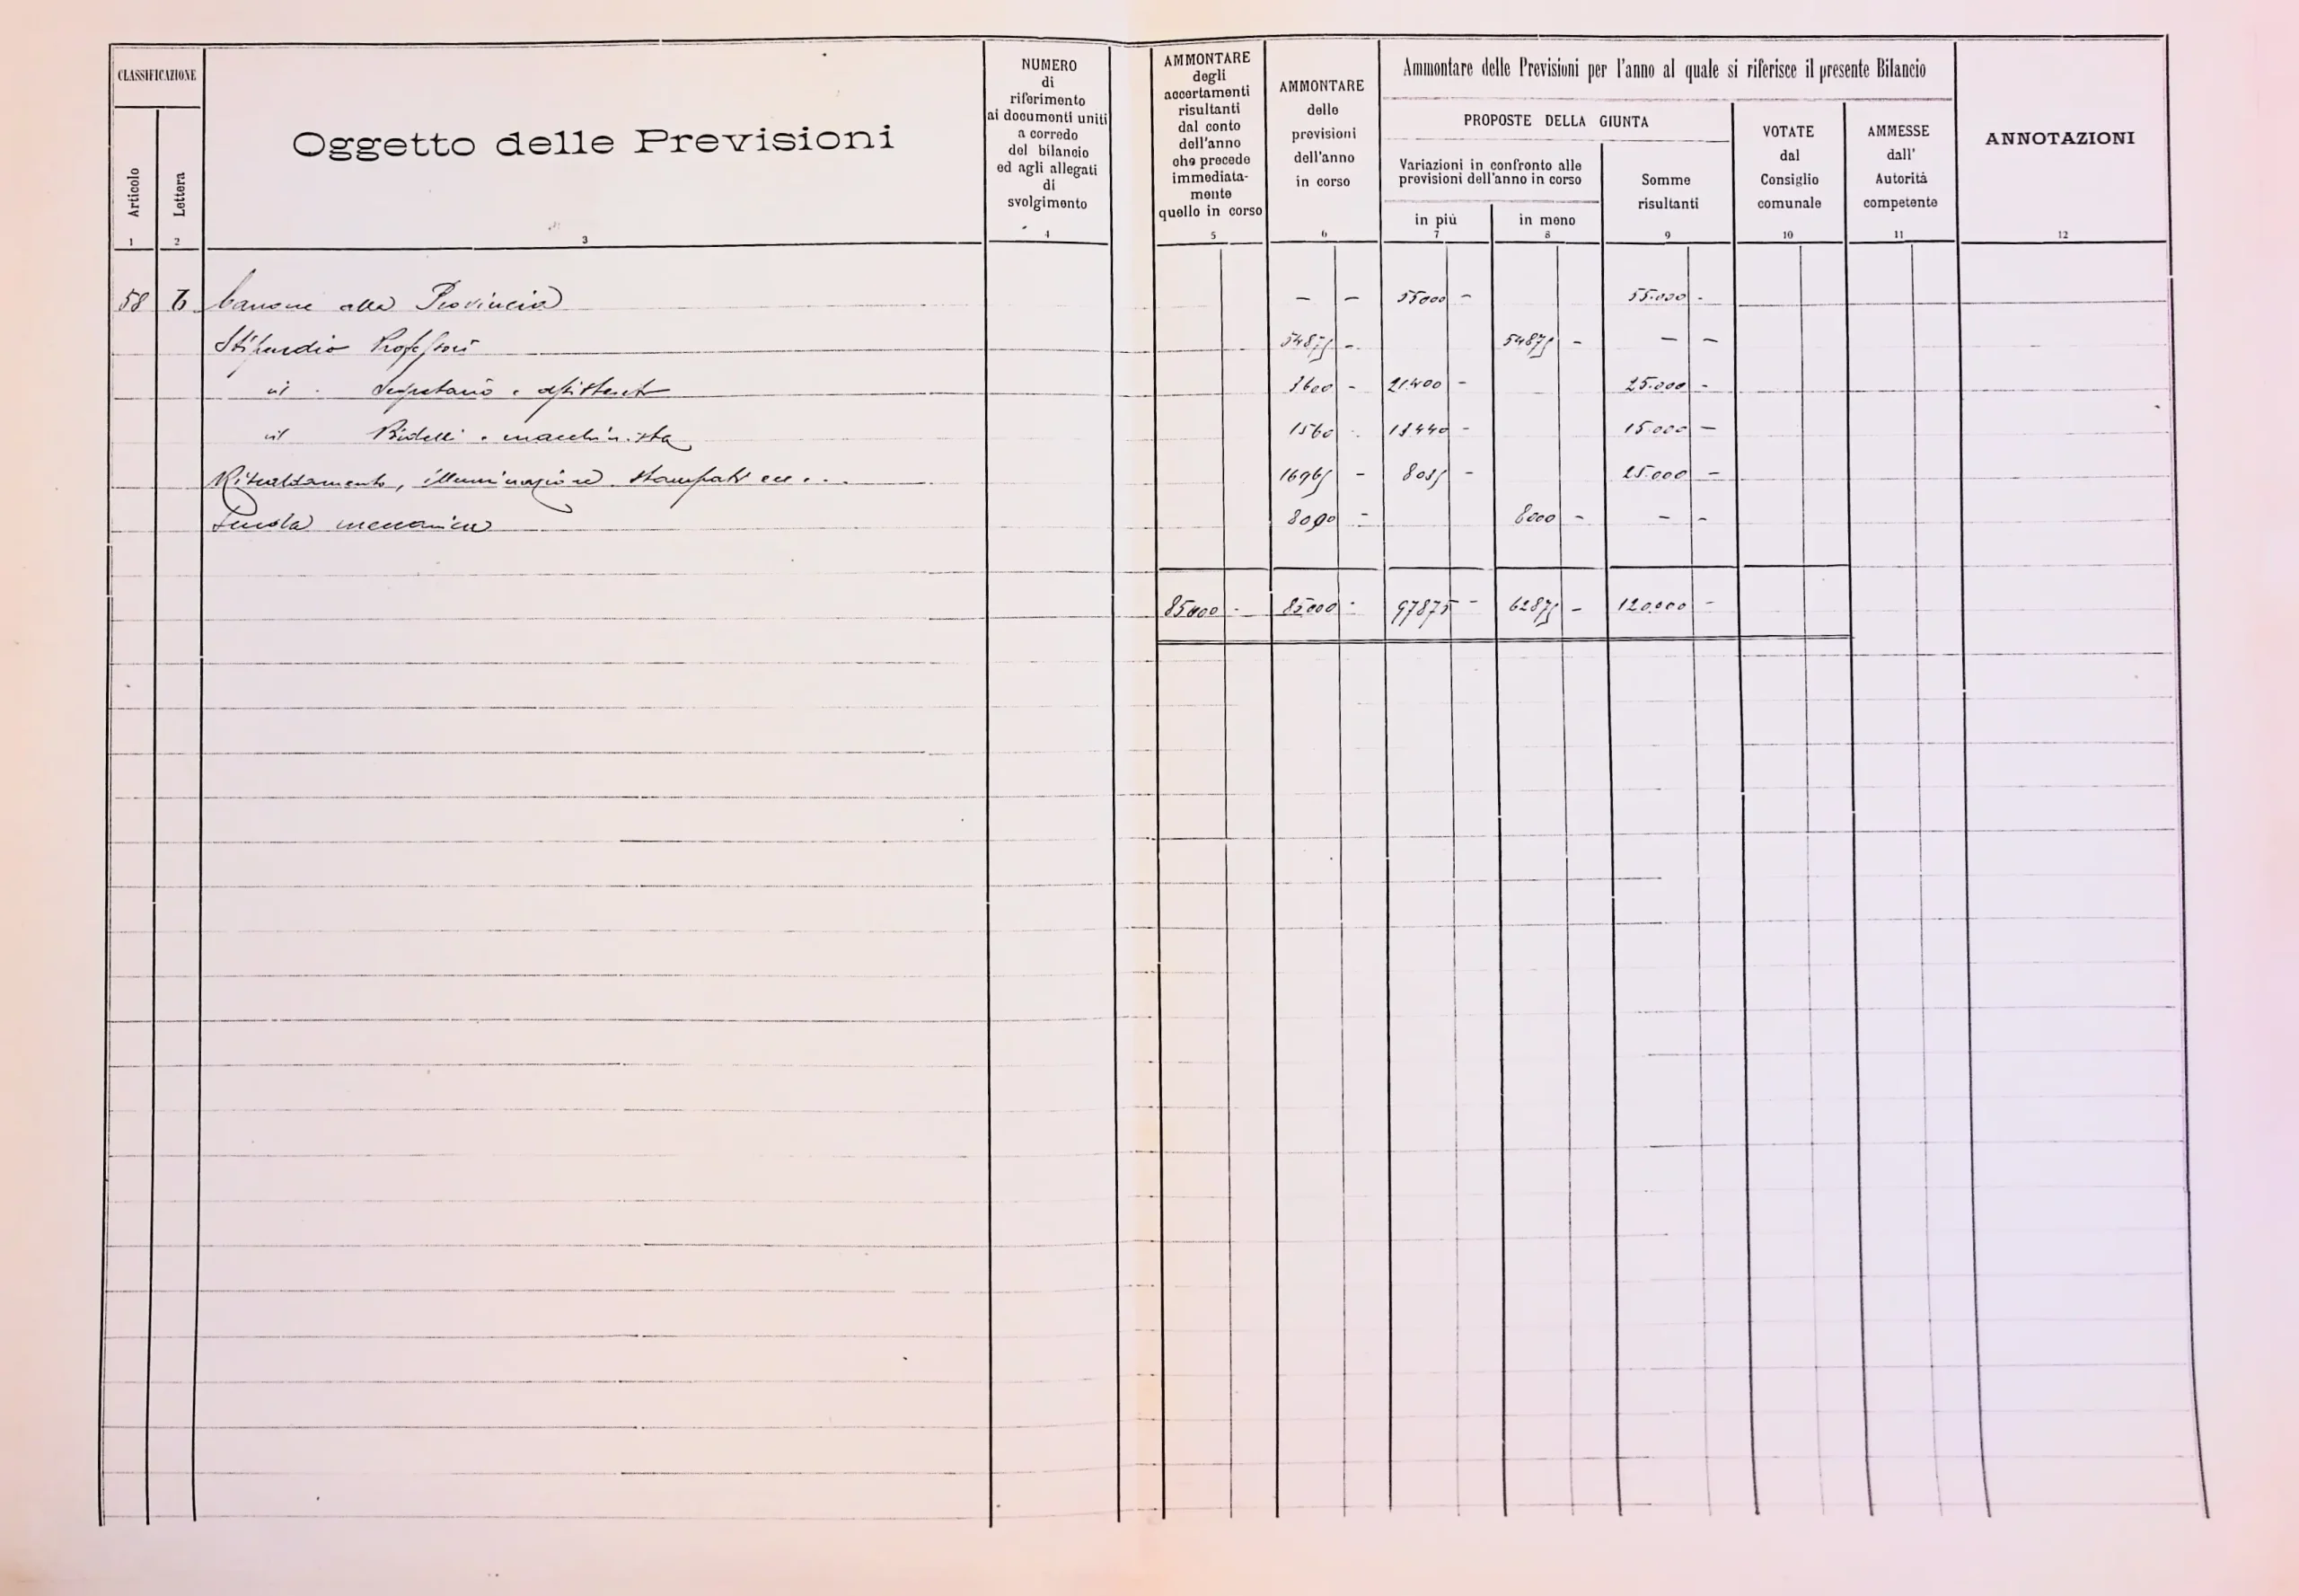 CLASSIFICAZIONE
Articolo
1
Lettera
2
Oggetto delle Previsioni
3
NUMERO
di
riferimento
ai documenti uniti
a corredo
del bilancio
ed agli allegati
di
svolgimento
4
AMMONTARE
degli
accertamenti
risultanti
dal conto
dell'anno
che precede
immediata-
mente
quello in corso
5
AMMONTARE
delle
previsioni
dell'anno
in corso
6
Ammontare delle Previsioni per l'anno al quale si riferisce il presente Bilancio
PROPOSTE DELLA GIUNTA
Variazioni in confronto alle
previsioni dell'anno in corso
in più
7
in meno
8
Somme
risultanti
9
VOTATE
dal
Consiglio
comunale
10
AMMESSE
dall'
Autorità
competente
11
ANNOTAZIONI
12
58 b Canone alla Provincia – – 55000 – 55.000 -
Stipendio Professori 54875 - 54875 - – –
id - Segretario e assistenti 3600 - 21400 - 25.000 -
id Bidelli e macchinista 1560 - 13440 - 15.000 –
Riscaldamento, illuminazione stampati ecc... 16965 - 8035 - 25.000 –
Scuola meccanica 8000 - 8000 - – -
85000 - 85000 - 97875 - 62875 - 120.000 -